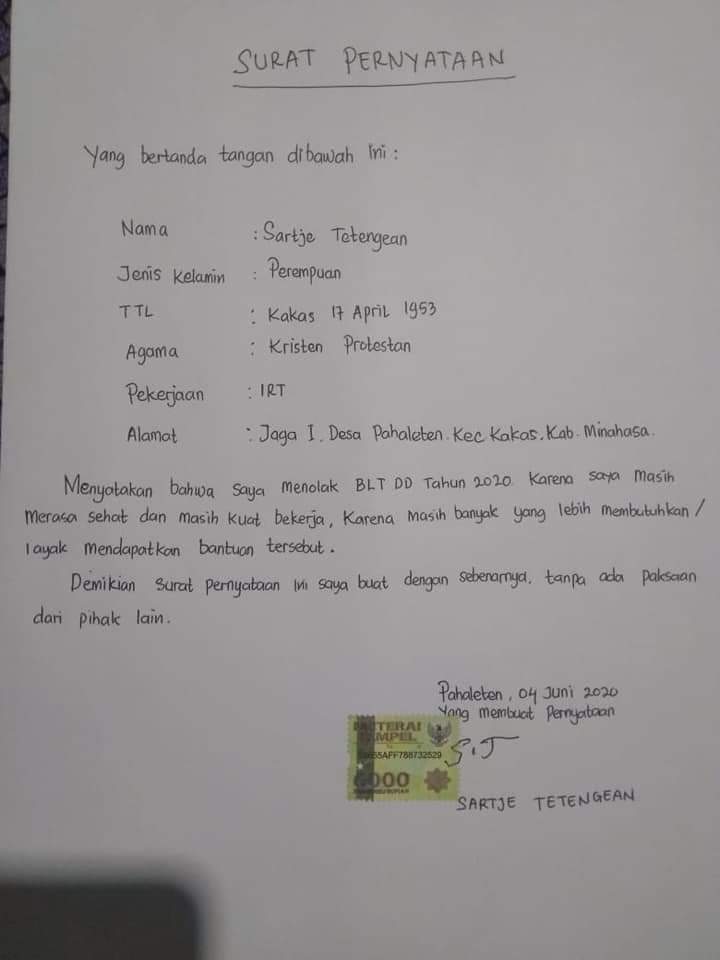 SURAT PERNYATAAN
Yang bertanda tangan dibawah ini :
Nama : Sartje Tetengean
Jenis Kelamin : Perempuan
TTL : Kakas 17 April 1953
Agama : Kristen Protestan
Pekerjaan : IRT
Alamat : Jaga I. Desa Pahaleten. Kec Kakas. Kab. Minahasa.
Menyatakan bahwa saya menolak BLT DD Tahun 2020. Karena saya masih
merasa sehat dan masih kuat bekerja, Karena masih banyak yang lebih membutuhkan /
layak mendapatkan bantuan tersebut.
Demikian Surat pernyataan ini saya buat dengan sebenarnya. tanpa ada paksaan
dari pihak lain.
Pahaleten, 04 Juni 2020
Yang membuat Pernyataan
TERAI
MPEL
55AFF788732529
6000
S.T
SARTJE TETENGEAN